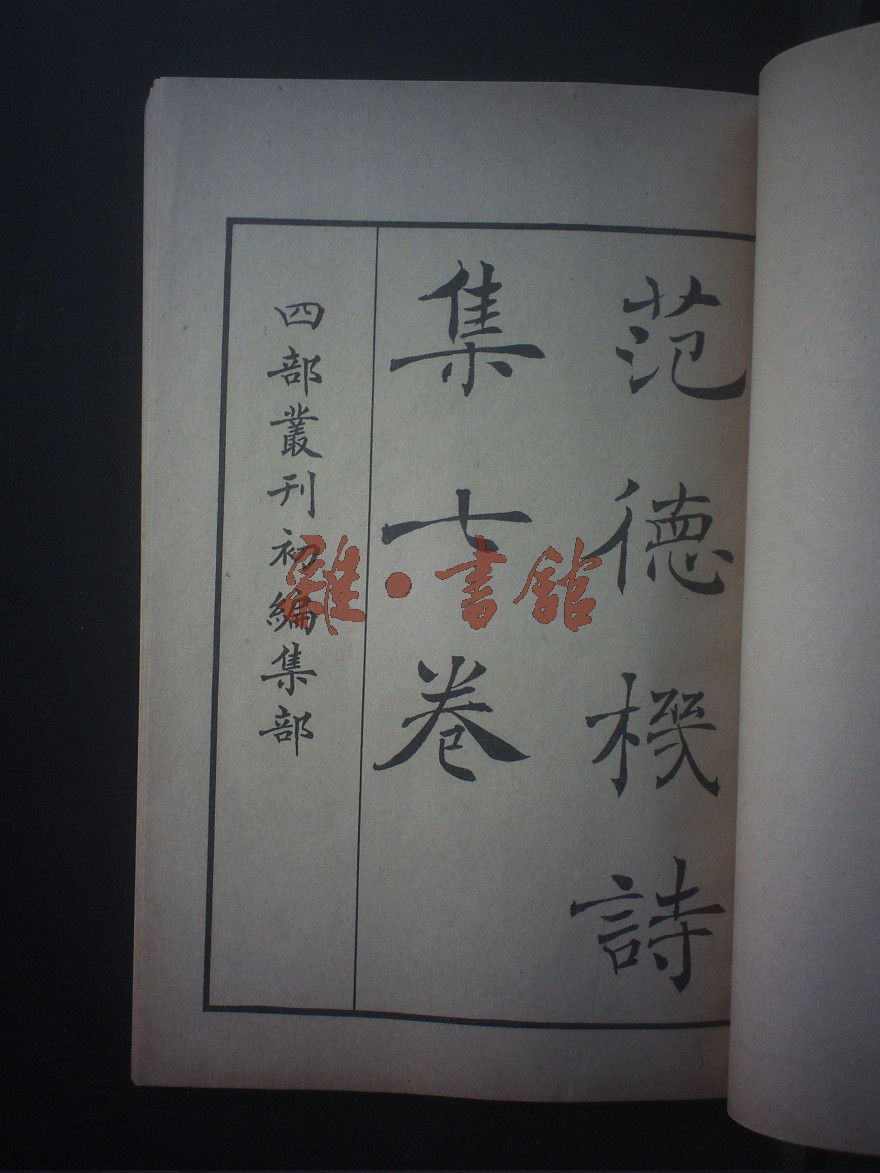 范德機詩
集七卷
四部叢刊初編集部
雜·書館